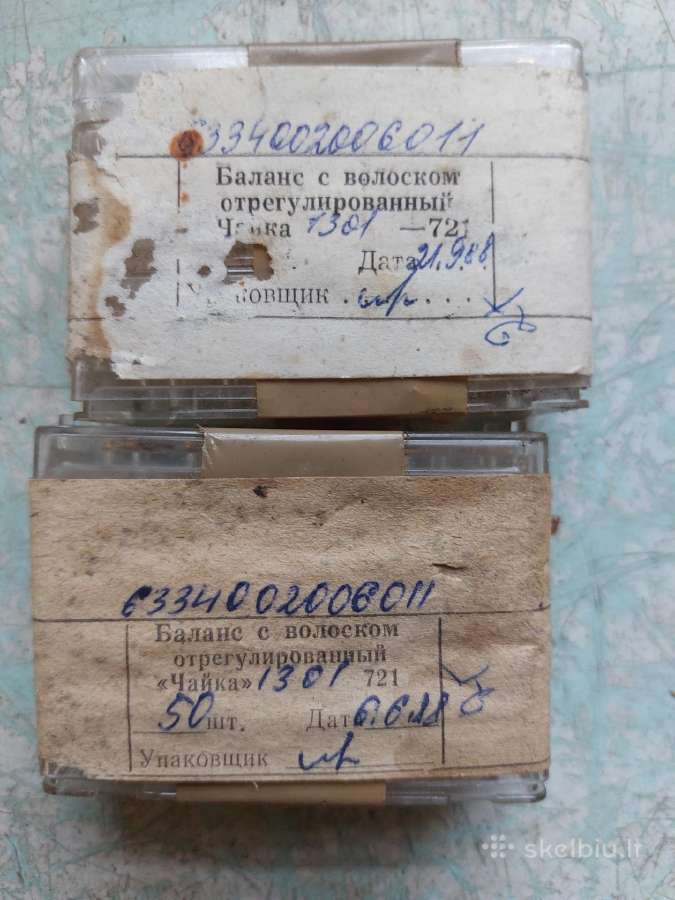 6334002006011
Баланс с волоском
отрегулированный
Чайка 1301 —721
Дата 21.9.88
Упаковщик
6334002006011
Баланс с волоском
отрегулированный
«Чайка» 1301 721
50 шт. Дата 6.6.88
Упаковщик
skelbiu.lt